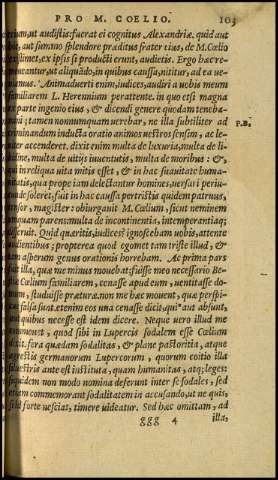 PRO M. COELIO. 103
terium, ut audistis: fuerat ei cognitus Alexandriæ. quid aut
hic, aut summo splendore præditus frater eius, de M. Cœlio
existimet, ex ipsis si producti erunt, audietis. Ergo hæc re-
moueantur, ut aliquādo, in quibus caussa, nititur, ad ea ue-
niamus. Animaduerti enim, iudices, audiri a uobis meum
familiarem L. Herennium perattente. in quo etsi magna
ex parte ingenio eius, & dicendi genere quodam teneba-
mini; tamen nonnumquam uerebar, ne illa subtiliter ad
criminandum inducta oratio animos uestros sensim, ac le-
niter accenderet. dixit enim multa de luxuria, multa de li-
bidine, multa de uitiis iuuentutis, multa de moribus: &,
qui in reliqua uita mitis esset, & in hac suauitate huma-
nitatis, qua prope iam delectantur homines, uersari periu-
cunde soleret, fuit in hac caussa pertristis quidem patruus,
censor, magister: obiurgauit M. Cœlium, sicut neminem
umquam parens: multa de incontinentia, intemperantiaq;
disseruit. Quid quæritis, iudices? ignoscebam uobis, attente
audientibus; propterea quod egomet tam triste illud, &
tam asperum genus orationis horrebam. Ac prima pars
fuit illa, quæ me minus mouebat: fuisse meo necessario Be-
stiæ Cœlium familiarem, cenasse apud eum, uentitasse do-
mum, studuisse præturæ. non me hæc mouent, quæ perspi-
cue falsa sunt. etenim eos una cenasse dicit, qui aut absunt,
aut quibus necesse est idem dicere. Neque uero illud me
commouet, quod sibi in Lupercis sodalem esse Cœlium
dixit. fera quædam sodalitas, & plane pastoritia, atque
agrestis germanorum Lupercorum, quorum coitio illa
siluestris ante est instituta, quam humanitas, atq; leges:
siquidem non modo nomina deferunt inter se sodales, sed
etiam commemorant sodalitatem in accusando, ut ne quis,
si id forte nesciat, timere uideatur. Sed hæc omittam, ad
ggg 4 illa,
P.B.